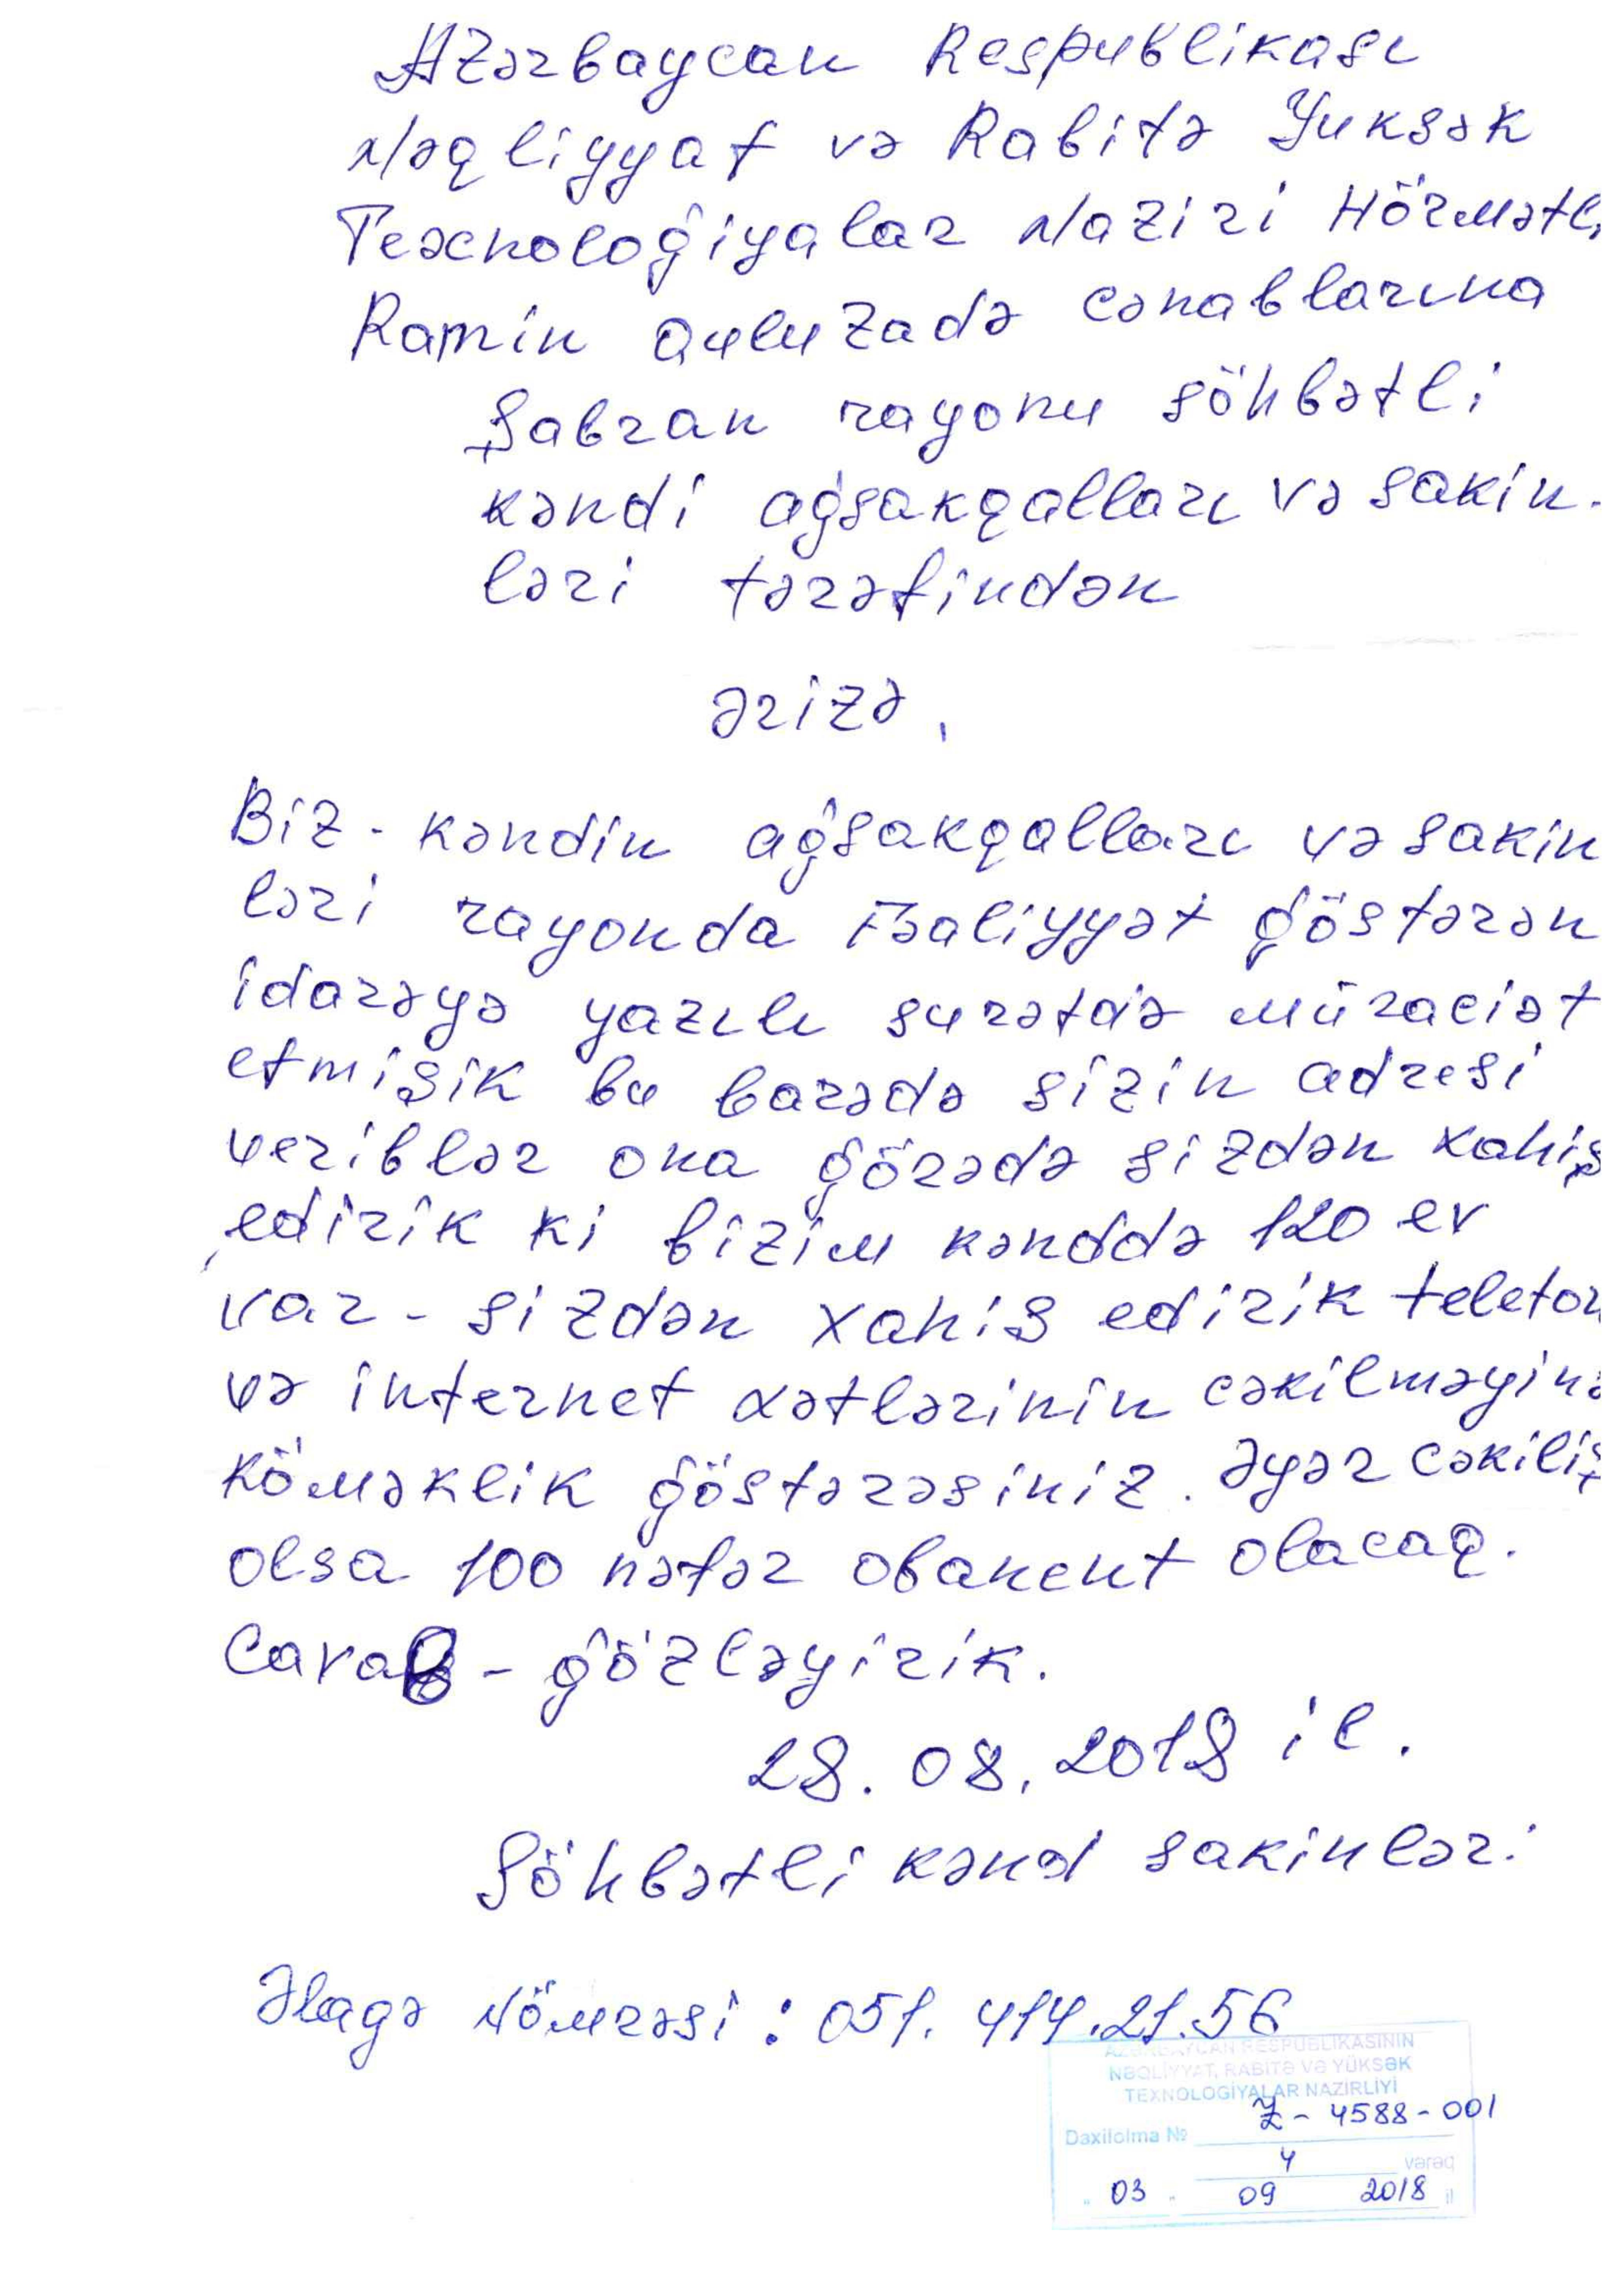 Azərbaycan Respublikası
Nəqliyyat və Rabitə Yuksək
Texnologiyalar Naziri Hörmətli
Ramin Quluzadə cənablarına
Şabran rayonu Söhbətli
kəndi ağsakqalları və sakin-
ləri tərəfindən
Ərizə,
Biz - kəndin ağsakqalları və sakin
ləri rayonda Fəaliyyət göstərən
idarəyə yazılı surətdə müraciət
etmişik bu barədə sizin adresi
veriblər ona görədə sizdən xahiş
edirik ki bizim kənddə 120 ev
var - sizdən xahis edirik telefon
və internet xətlərinin cəkilməyinə
köməklik göstərəsiniz. Əyər cəkiliş
olsa 100 nəfər obanent olacaq.
Cavab - gözləyirik.
28. 08. 2018 il.
Söhbətli kənd sakinləri
Əlagə Nömrəsi : 051. 414.21.56
AZƏRBAYCAN RESPUBLİKASININ
NƏQLİYYAT, RABİTƏ VƏ YÜKSƏK
TEXNOLOGİYALAR NAZİRLİYİ
Daxilolma № - 4588-001
4 vərəq
" 03 " 09 2018 il